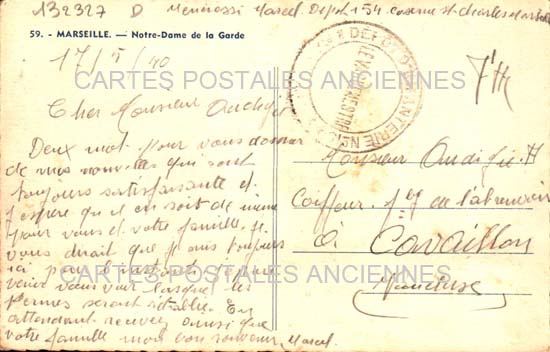 132327 D Mennossi Marcel Depot 154 Caserne St Charles Marseille
59. - MARSEILLE. — Notre-Dame de la Garde
17/5/40
F M
DEPOT D'INFANTERIE N°
LE VAGUEMESTRE
CARTES POSTALES ANCIENNES
Cher Monsieur Audigier
Deux mot pour vous donner
de mes nouvelles qui sont
toujours satisfaisante et
j'espère qu'il en soit de meme
pour vous et votre famille. Je
vous dirait que je suis toujours
ici pour l'instant je
venir vous voir lorsque les
permes seront rétablie. En
attendant recevez ainsi que
votre famille mon bon souvenir, Marcel
Monsieur Audigier H
Coiffeur
à Cavaillon
Vaucluse
CARTES POSTALES ANCIENNES